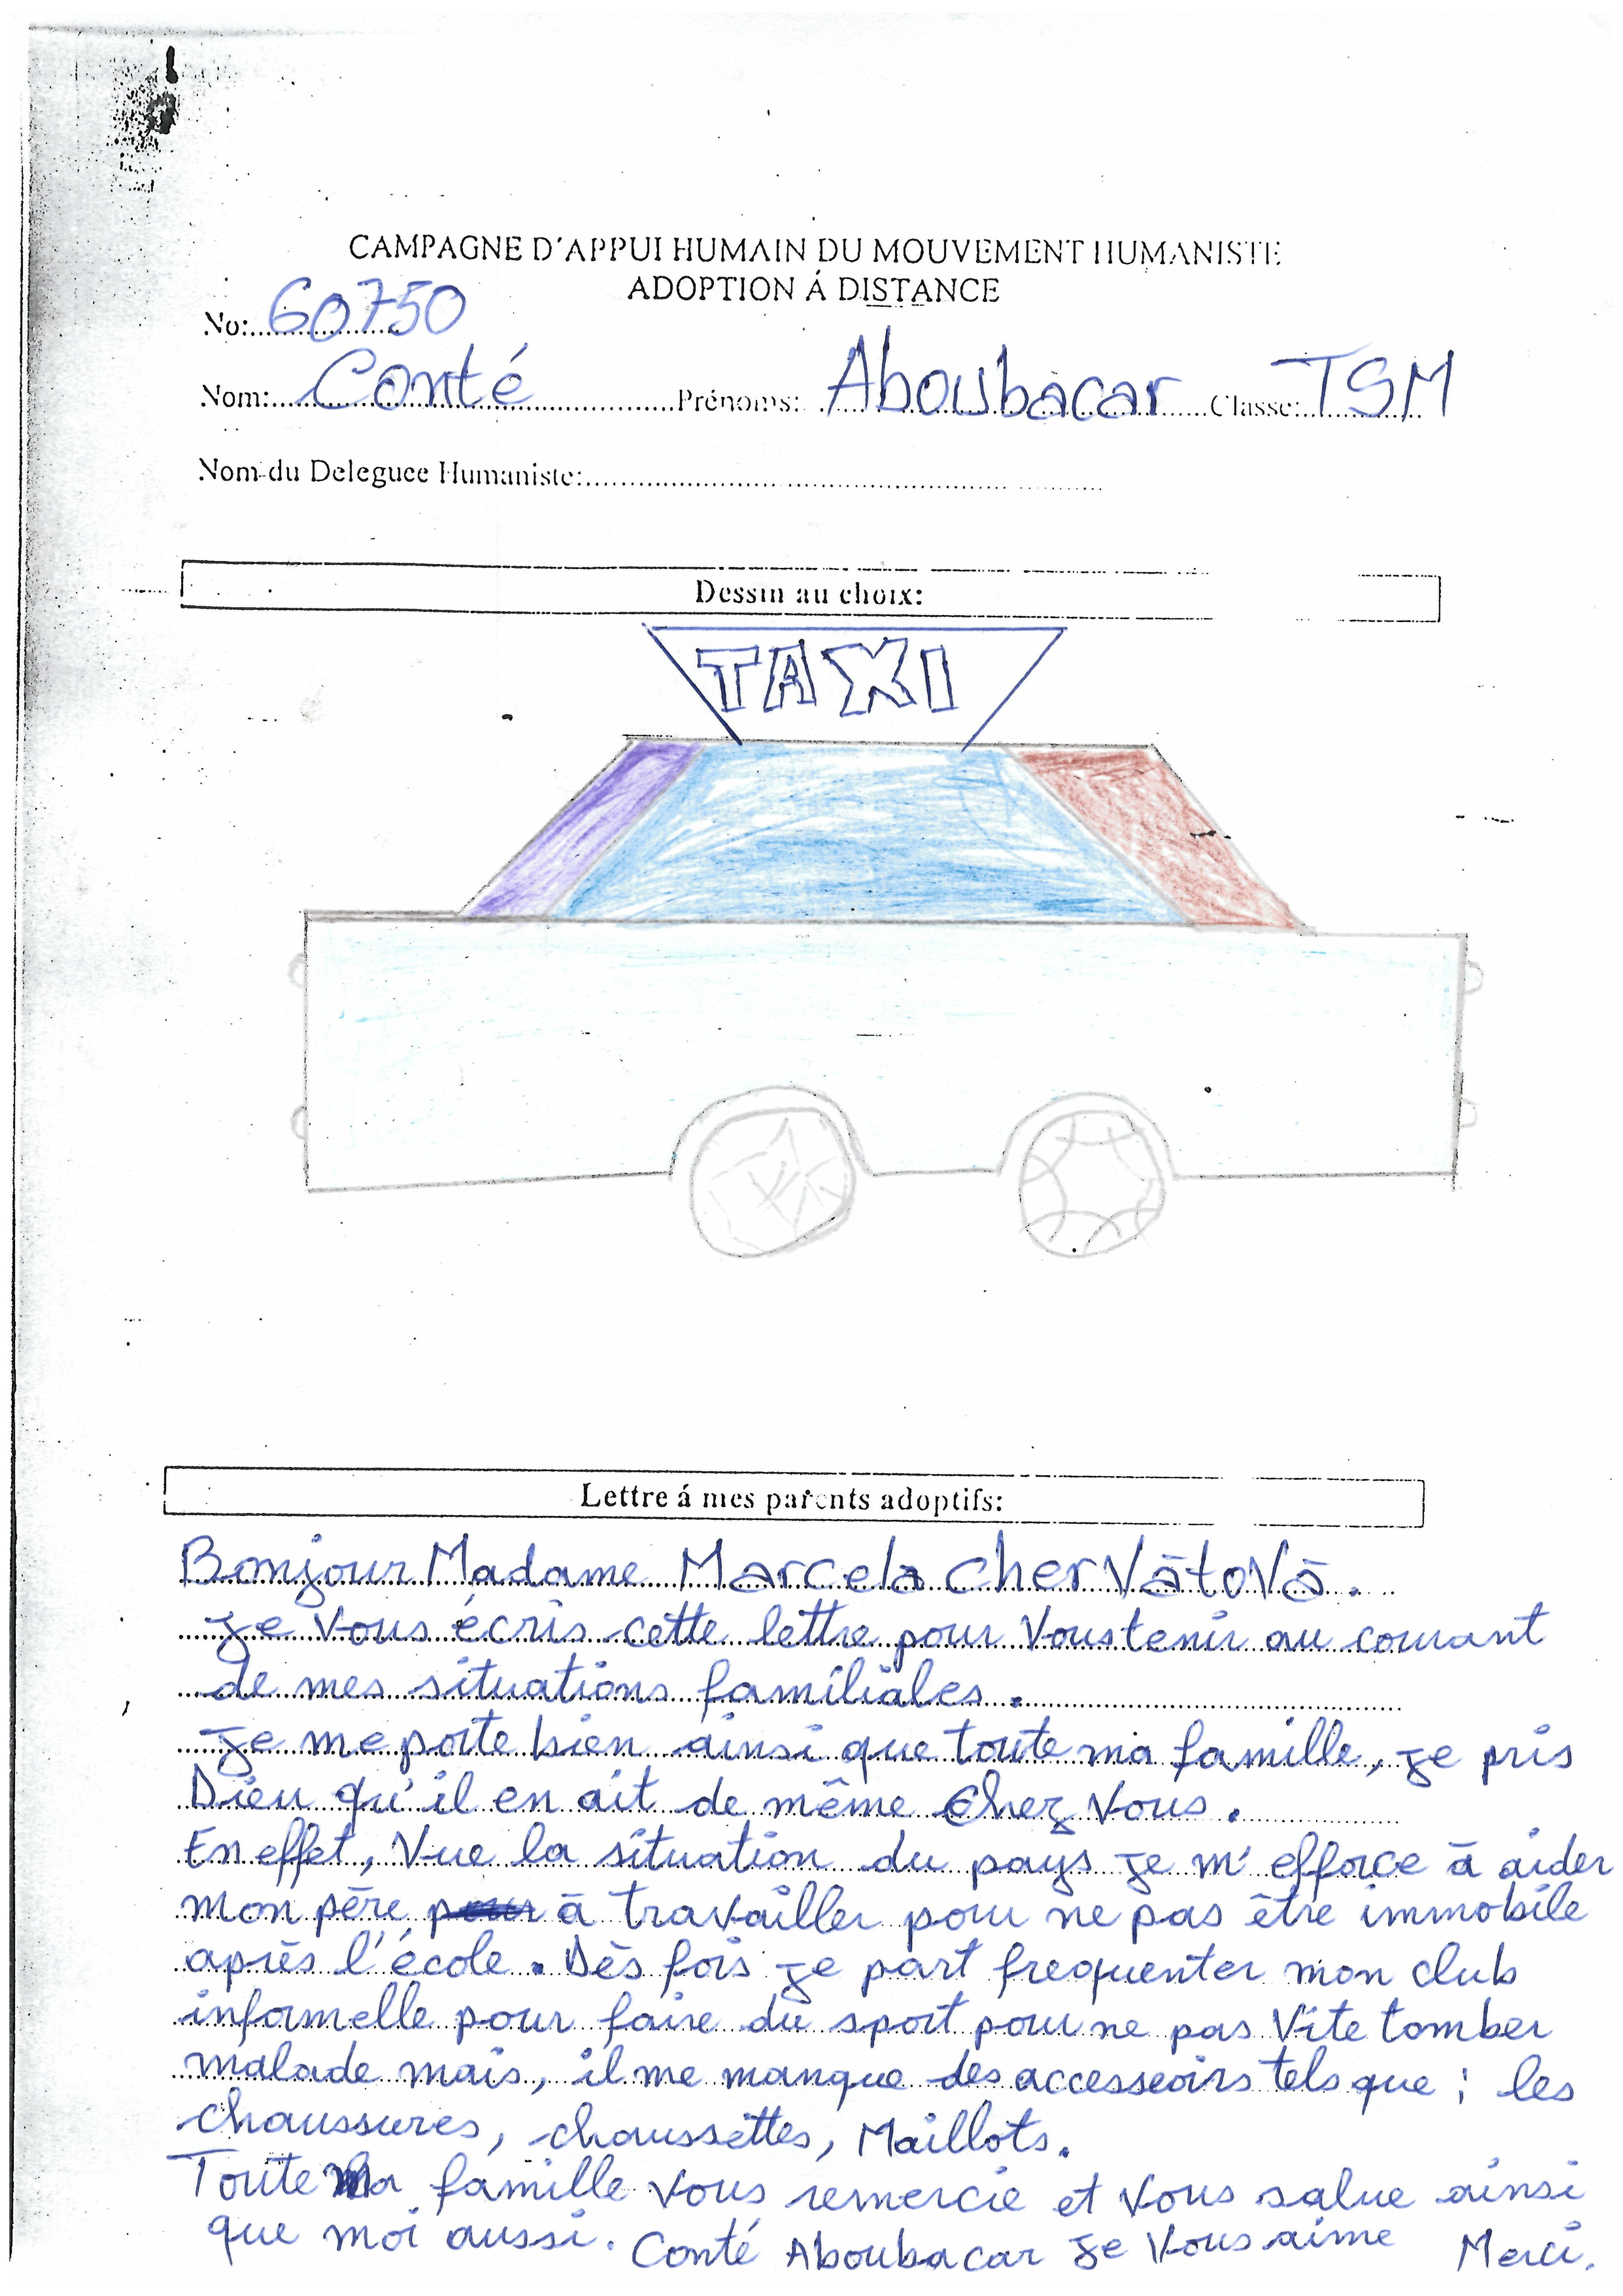 CAMPAGNE D'APPUI HUMAIN DU MOUVEMENT HUMANISTE
ADOPTION Á DISTANCE
No: 60750
Nom: Conté Prénoms: Aboubacar Classe: TSM
Nom du Deleguee Humaniste:
Dessin au choix:
TAXI
Lettre á mes parents adoptifs:
Bonjour Madame Marcela cherVātoVā.
Je vous écris cette lettre pour vous tenir au courant
de mes situations familiales.
Je me porte bien ainsi que toute ma famille, je pris
Dieu qu'il en ait de même chez vous.
En effet, vue la situation du pays je m'efforce à aider
mon père à travailler pour ne pas être immobile
après l'école. Dès fois je part frequenter mon club
informelle pour faire du sport pour ne pas vite tomber
malade mais, il me manque des accesseoirs tels que ; les
chaussures, chaussettes, Maillots.
Toute Ma famille vous remercie et vous salue ainsi
que moi aussi. Conté Aboubacar je vous aime Merci.